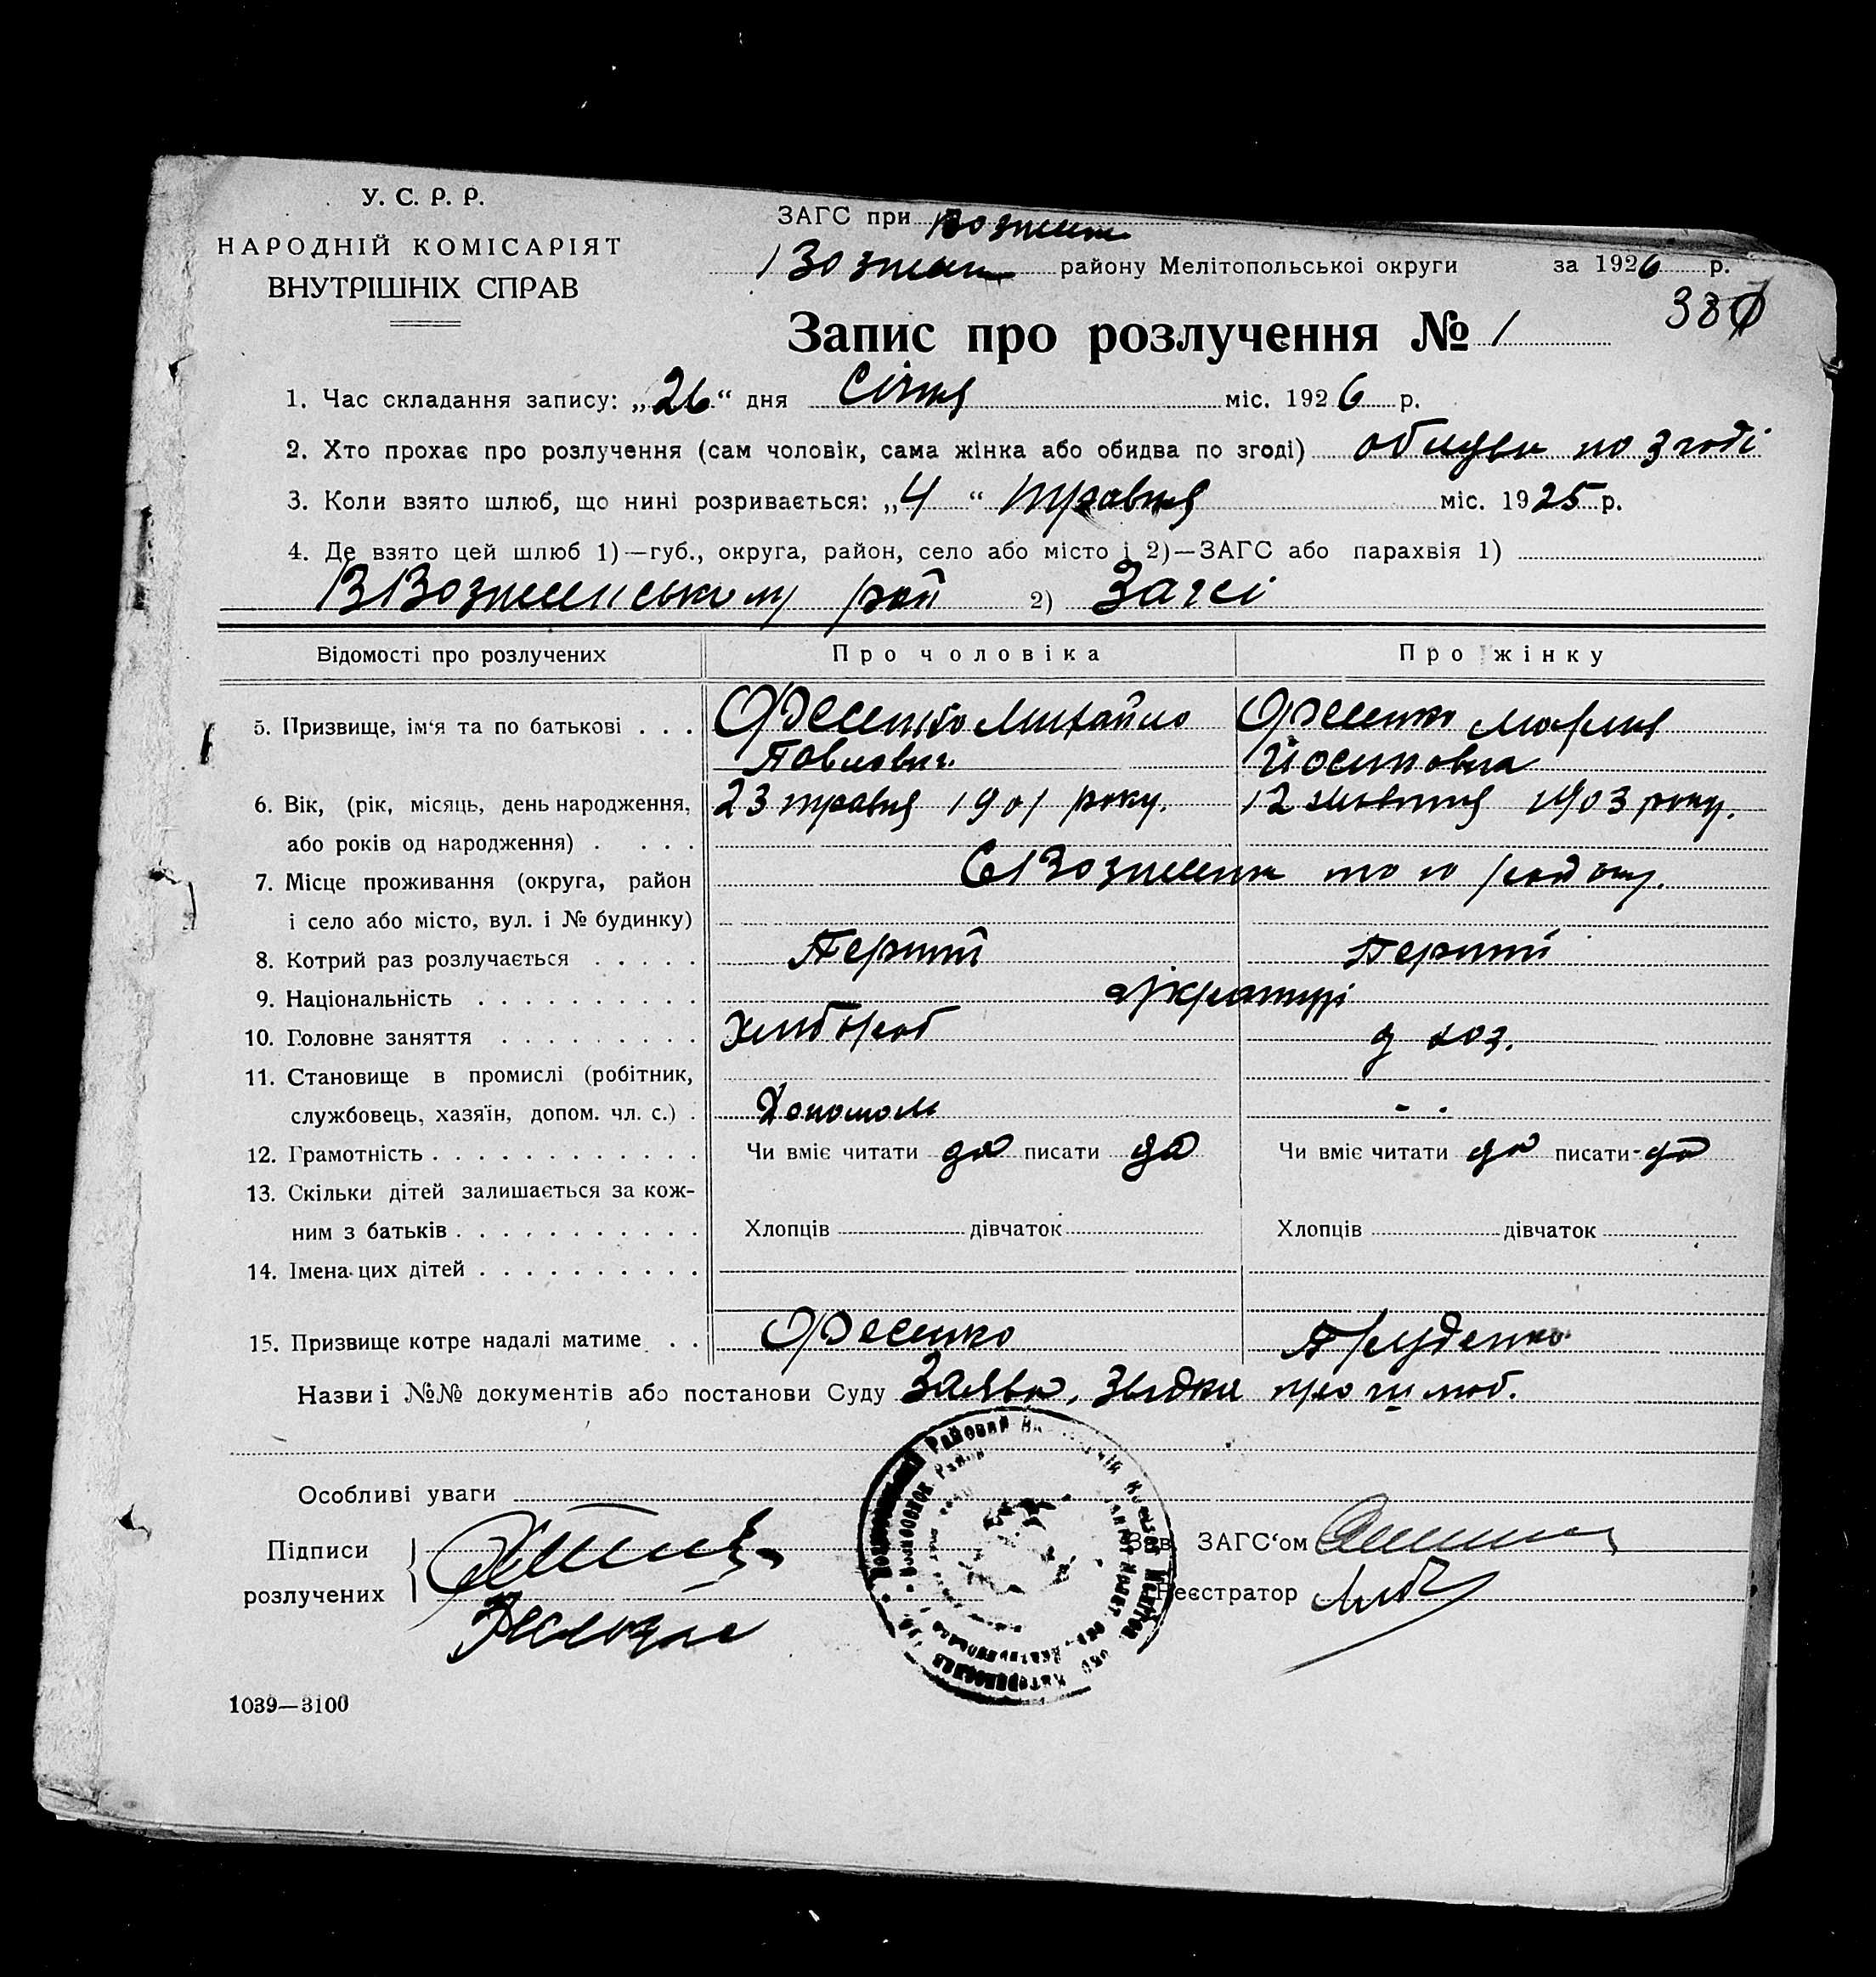 У. С. Р. Р.
НАРОДНІЙ КОМІСАРІЯТ
ВНУТРІШНІХ СПРАВ
ЗАГС при Вознесен
Вознесен району Мелітопольської округи за 1926 р.
Запис про розлучення № 1
1. Час складання запису: „26“ дня Січня міс. 1926 р.
2. Хто прохає про розлучення (сам чоловік, сама жінка або обидва по згоді) обидва по згоді
3. Коли взято шлюб, що нині розривається: „4“ травня міс. 1925 р.
4. Де взято цей шлюб 1)—губ., округа, район, село або місто і 2)—ЗАГС або парахвія 1)
В Вознесенському рай 2) Загсі
Відомості про розлучених Про чоловіка Про жінку
5. Призвище, ім‘я та по батькові . . . Фесенко Михайло Фесенко Мария
Павлович Йосиповна
6. Вік, (рік, місяць, день народження, 23 травня 1901 року. 12 жовтня 1903 року.
або років од народження) . . . .
7. Місце проживання (округа, район С Вознесенка того району.
і село або місто, вул. і № будинку)
8. Котрий раз розлучається . . . . . Перший Перший
9. Національність . . . . . . . . . . українці
10. Головне заняття . . . . . . . . . Хлібороб д хоз.
11. Становище в промислі (робітник,
службовець, хазяїн, допом. чл. с.) . Допомом - -
12. Грамотність . . . . . . . . . . . . Чи вміє читати да писати да Чи вміє читати да писати да
13. Скільки дітей залишається за кож-
ним з батьків . . . . . . . . . . . Хлопців дівчаток Хлопців дівчаток
14. Імена цих дітей . . . . . . . . . .
15. Призвище котре надалі матиме . . Фесенко Пруденко
Назви і №№ документів або постанови Суду Заява, звідка про шлюб.
Особливі уваги
Підписи Зав. ЗАГС‘ом
розлучених Реєстратор
1039—3100